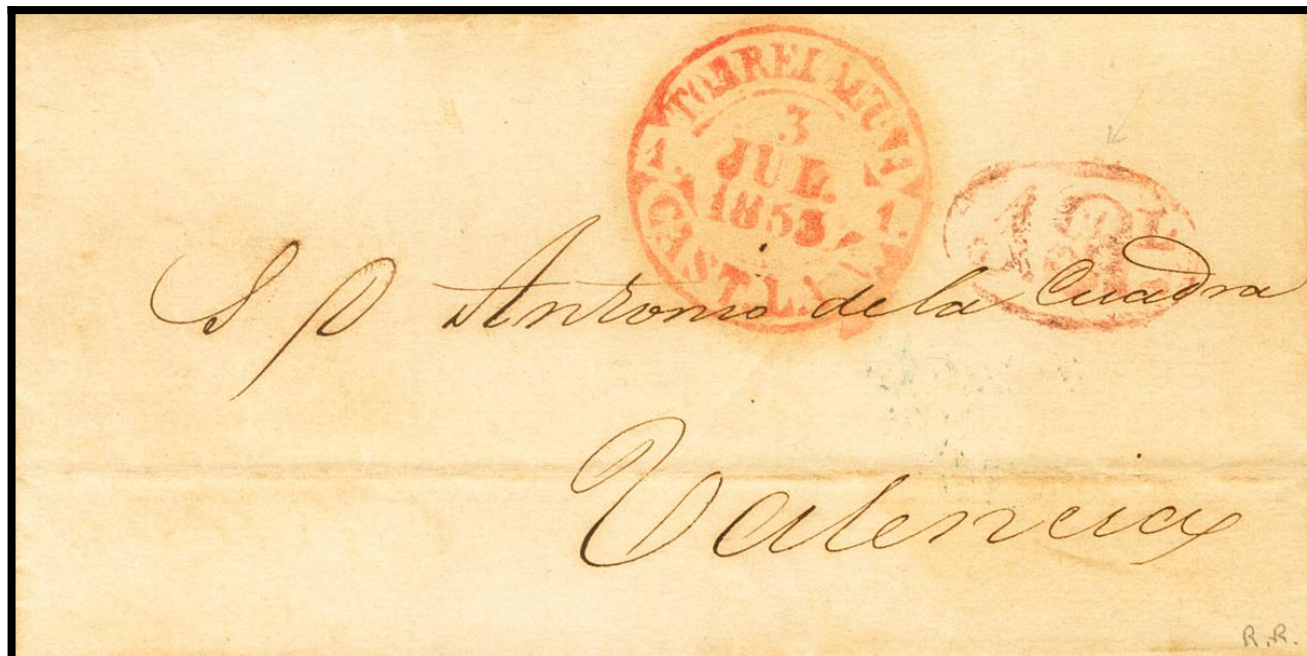 TORRELAGUNA
3
JUL.
1853
CAST. LA N.
S D Antonio de la Cuadra
Valencia
R.R.